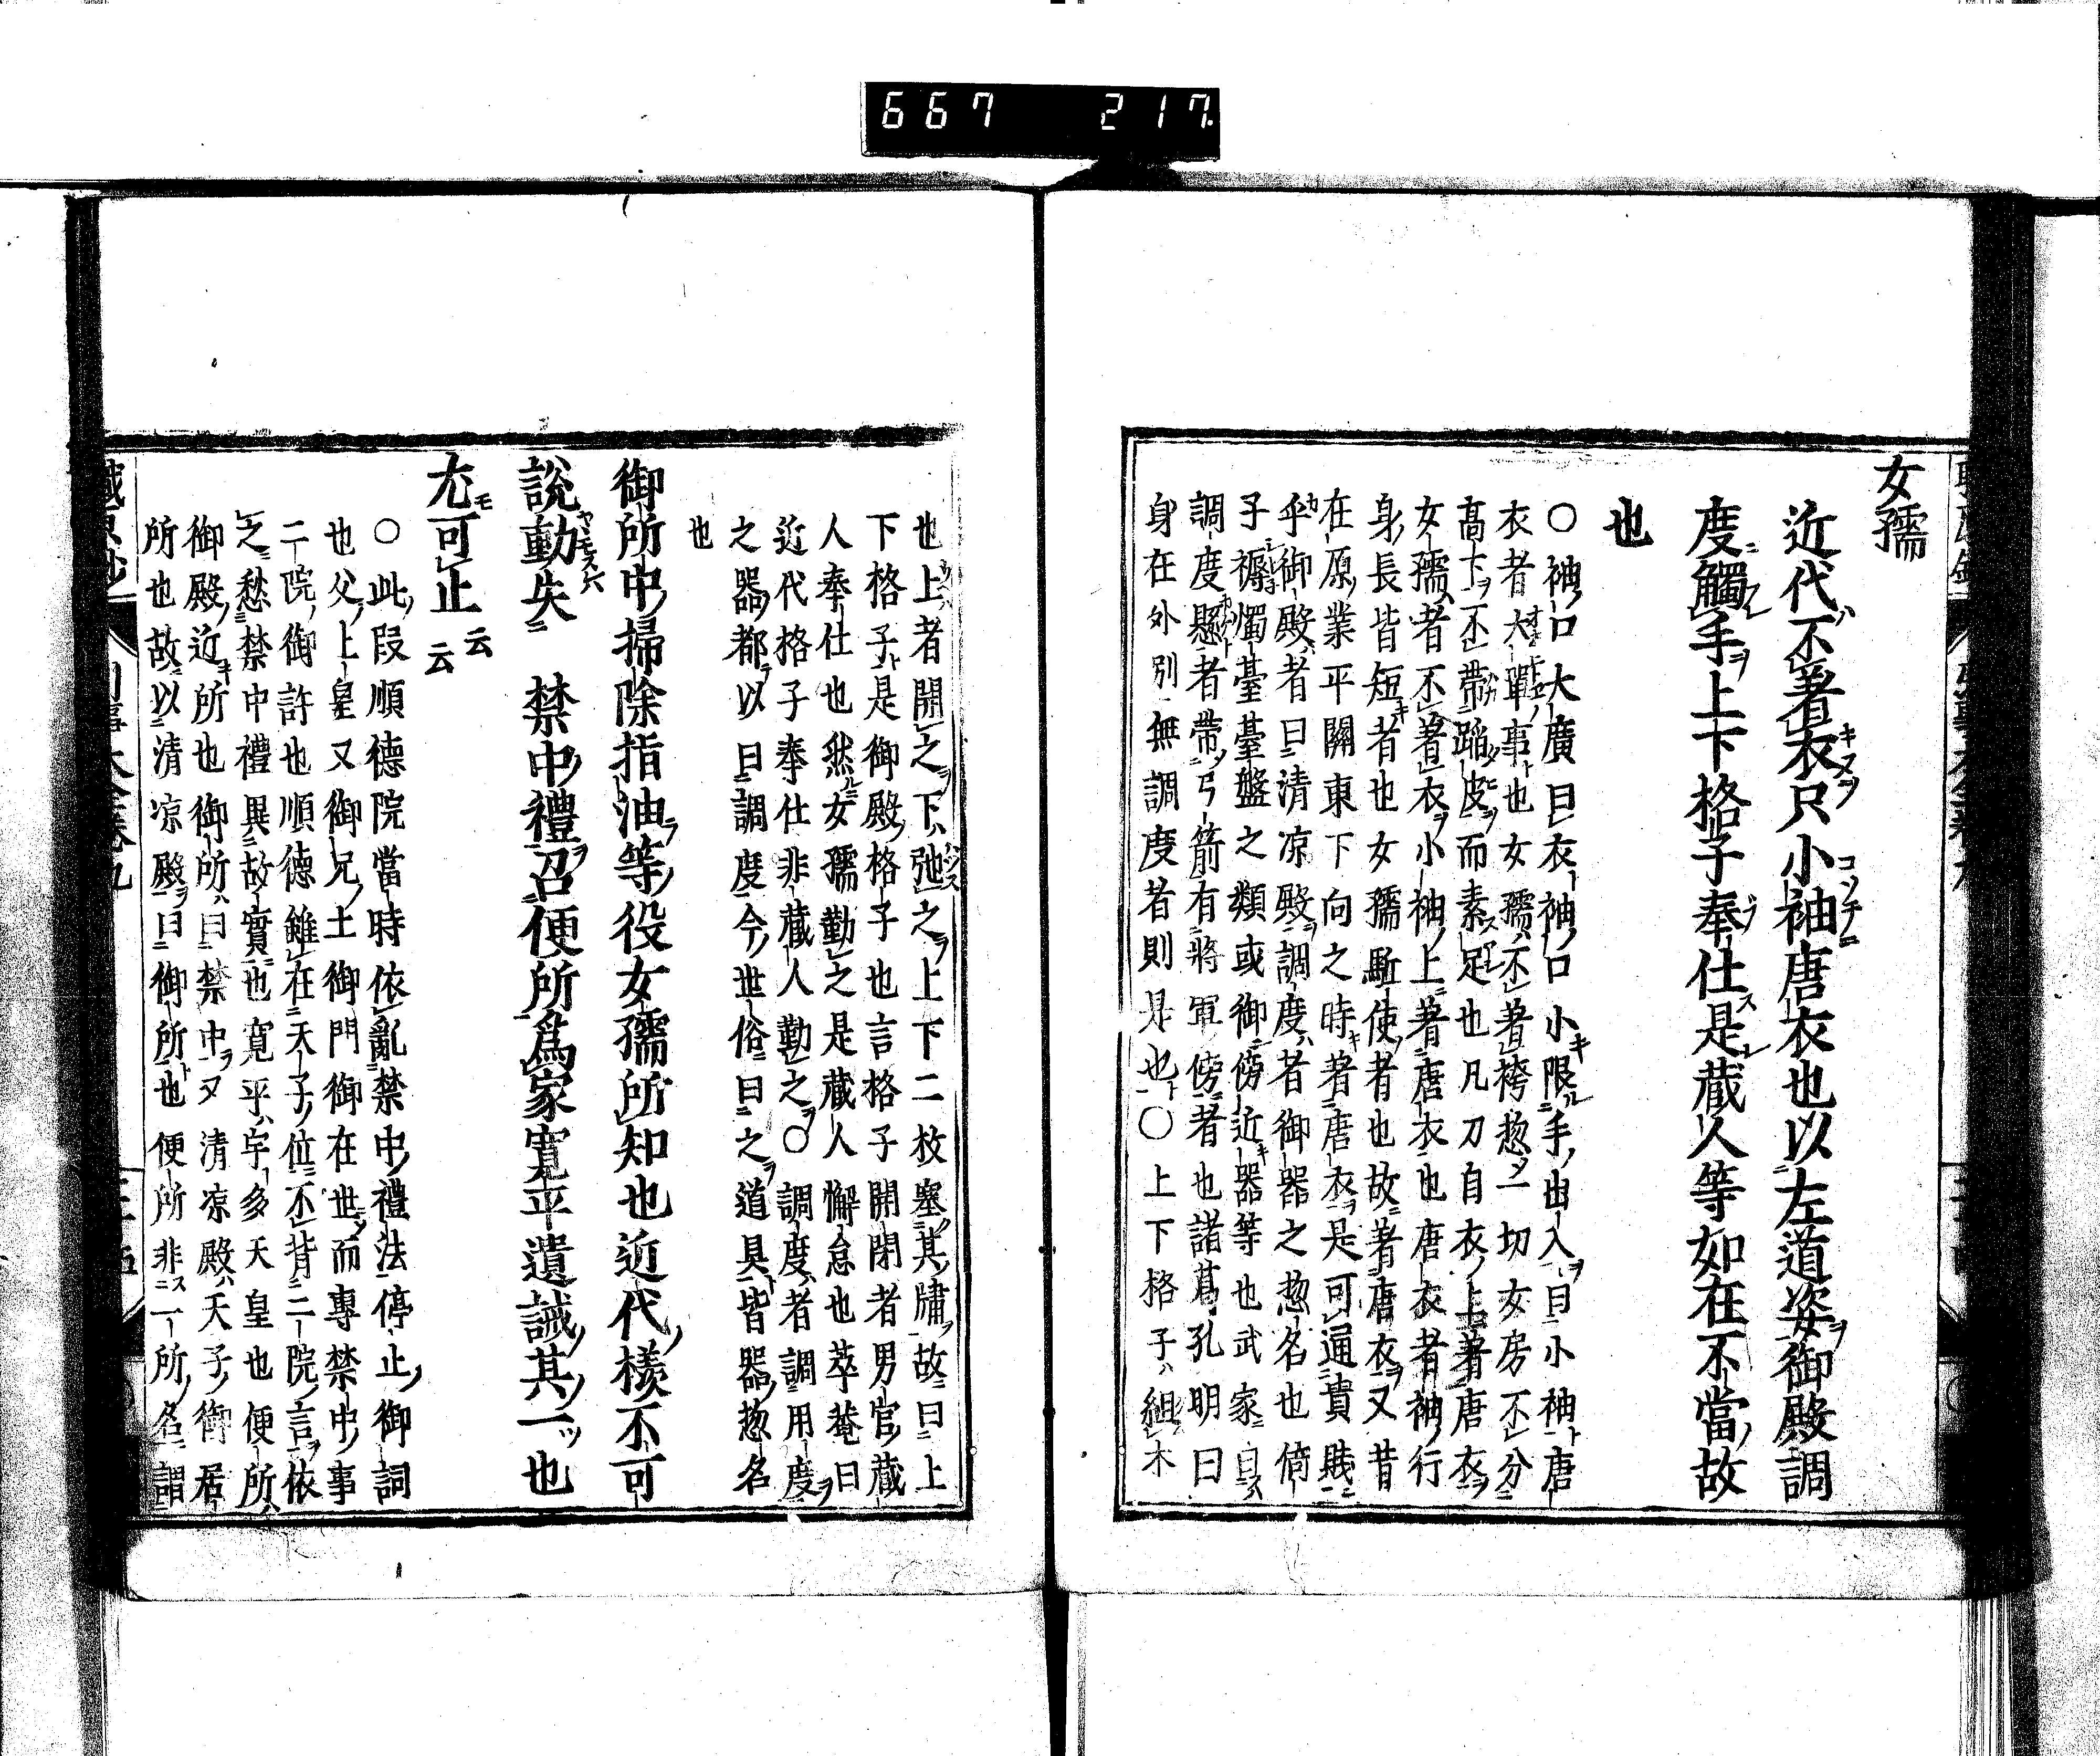 667 217.
女孺
近代不著衣只小袖唐衣也以左道姿御殿調
度觸手上下格子奉仕是蔵人等如在不當故
也
○袖口大廣曰衣袖口小限手出入曰小袖唐
衣者大事也女孺不著袴惣一切女房不分
高下不帶蹈皮而素足也凡刀自衣上著唐衣
女孺者不著衣小袖上著唐衣也唐衣者袖行
身長皆短者也女孺駈使者也故著唐衣又昔
在原業平關東下向之時著唐衣是可通貴賤
乎御殿者曰清凉殿調度者御器之惣名也倚
子褥燭臺臺盤之類或御傍近器等也武家曰
調度懸者帶弓箭有將軍傍者也諸葛孔明曰
身在外別無調度者則是也○上下格子組木
也上者開之下弛之上下二枚塞其牗故曰上
下格子是御殿格子也言格子開閉者男官蔵
人奉仕也然女孺勤之是蔵人懈怠也萃菴曰
近代格子奉仕非蔵人勤之○調度者調用度
之器都以曰調度今世俗曰之道具皆器惣名
也
御所中掃除指油等役女孺所知也近代樣不可
說動失 禁中禮召便所為家寬平遺誡其一也
尤可止云云
○此段順德院當時依亂禁中禮法停止御詞
也父上皇又御兄土御門御在世而專禁中事
二院御許也順德雖在天子位不背二院言依
之愁禁中禮異故實也寬平宇多天皇也便所
御殿近所也御所曰禁中又清凉殿天子御居
所也故以清凉殿曰御所也便所非一所名謂